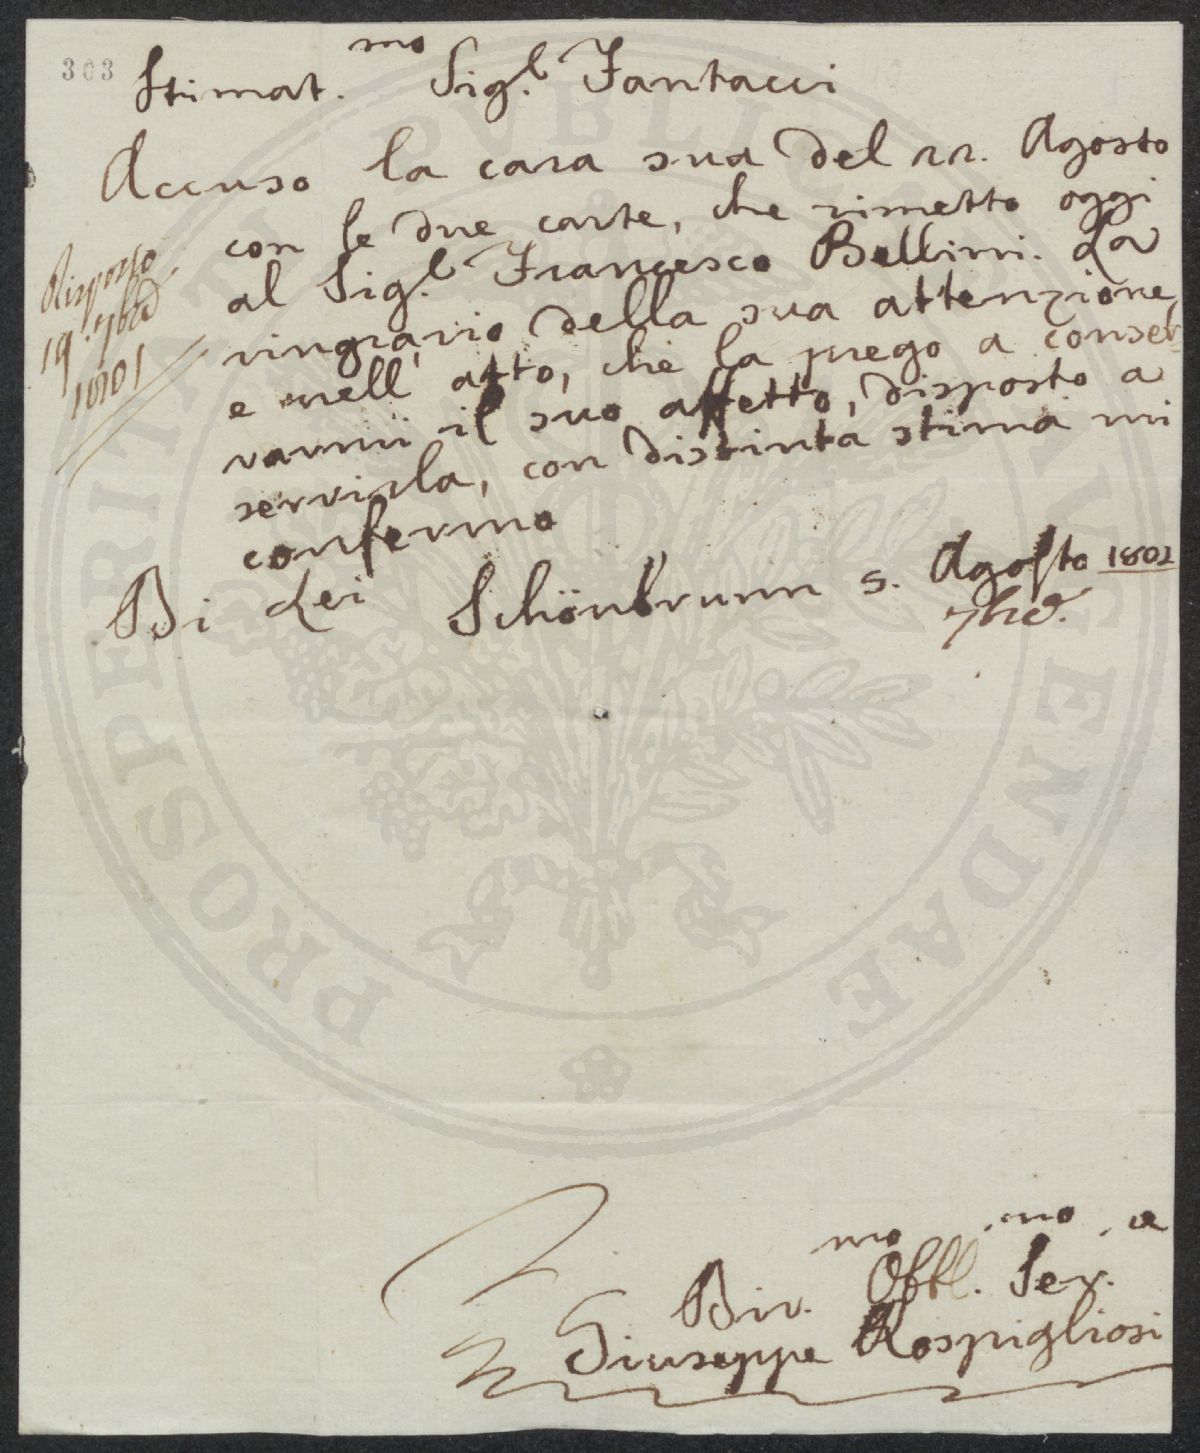 303
Stimat.mo Sig.l Fantacci
Accuso la cara sua del 22. Agosto
con le due carte, che rimetto oggi
al Sig.l Francesco Bellini. La
ringrazio della sua attenzione,
e nell'atto, che la prego a conser=
varmi il suo affetto, disposto a
servirla, con distinta stima mi
confermo
Risposto
19. 7bre
1801
Di Lei Schönbrunn 5. Agosto 1802
7bre.
Div.mo Obbl.mo Ser.e
Giuseppe Rospigliosi
PROSPERITATI PVBLICAE AVGENDAE